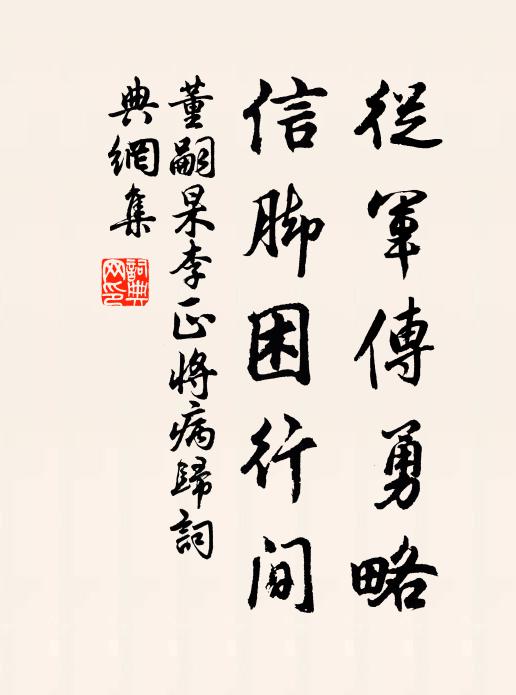 從軍傳勇略
信脚困行間
董嗣杲李正將病歸詞
典網集
詞典
网印